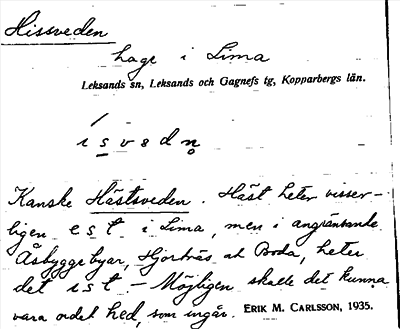 Hissveden
hage i Lima
Leksands sn, Leksands och Gagnefs tg, Kopparbergs län.
ísvedn̥
Kanske Hästsveden. Häst heter visser-
ligen est i Lima, men i angränsande
Åsbyggebyar, Hjortnäs och Boda, heter
det ist – Möjligen skulle det kunna
vara ordet hed, som ingår. ERIK M. CARLSSON, 1935.